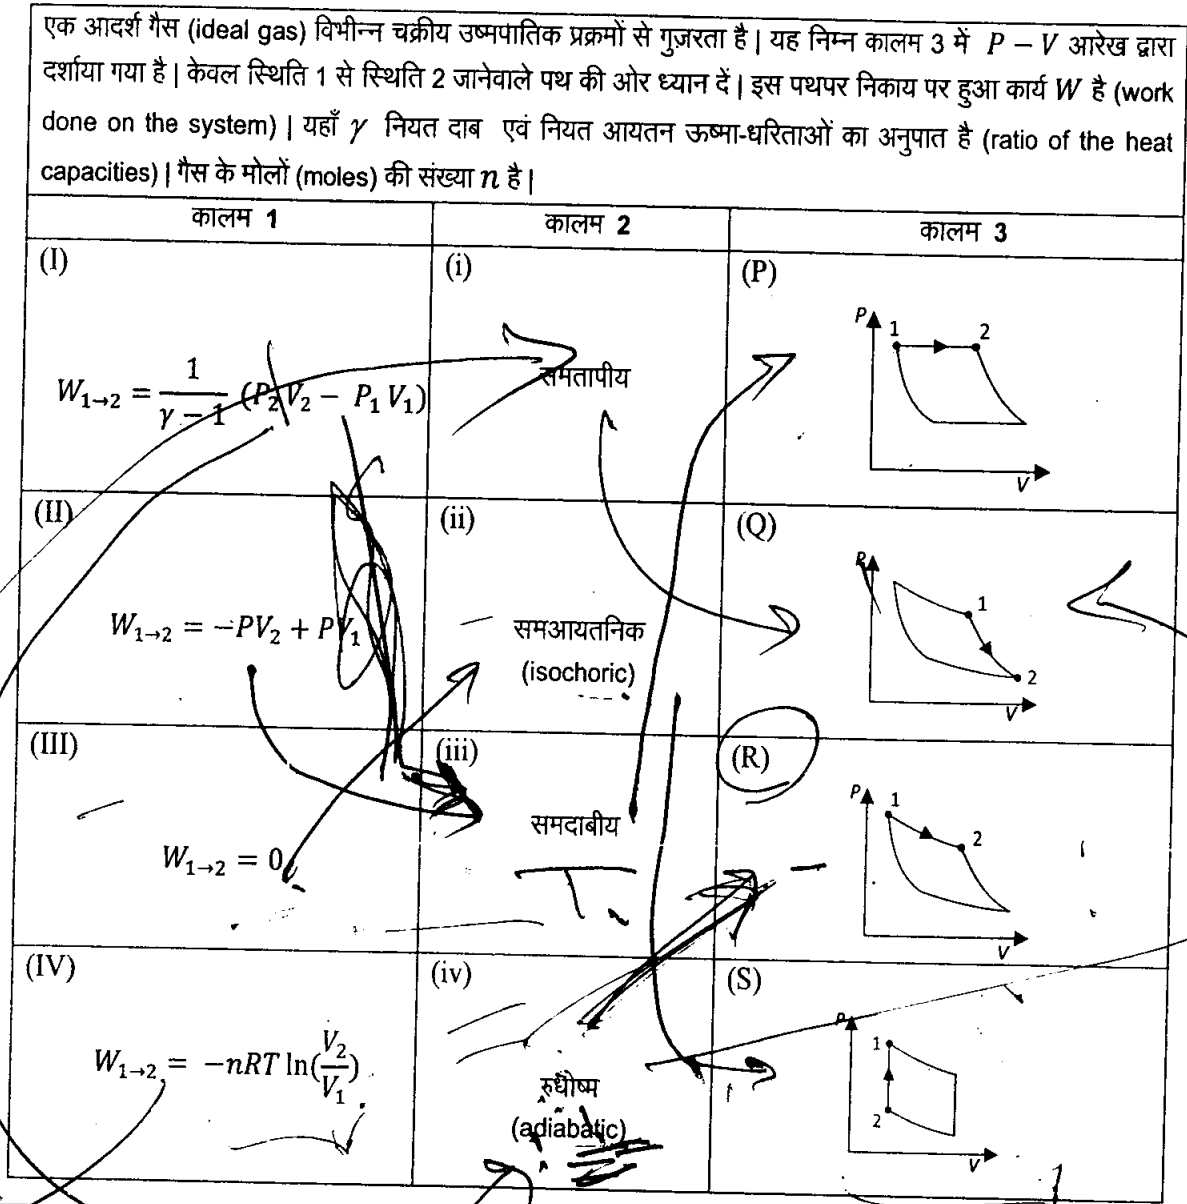 एक आदर्श गैस (ideal gas) विभीन्न चक्रीय उष्मपातिक प्रक्रमों से गुज़रता है | यह निम्न कालम 3 में P – V आरेख द्वारा
दर्शाया गया है | केवल स्थिति 1 से स्थिति 2 जानेवाले पथ की ओर ध्यान दें | इस पथपर निकाय पर हुआ कार्य W है (work
done on the system) | यहाँ γ नियत दाब एवं नियत आयतन ऊष्मा-धरिताओं का अनुपात है (ratio of the heat
capacities) | गैस के मोलों (moles) की संख्या n है |
कालम 1 कालम 2 कालम 3
(I) (i) (P)
P 1 2
W₁→₂ = 1/(γ – 1) (P₂V₂ – P₁V₁) समतापीय
V
(II) (ii) (Q)
P 1
W₁→₂ = –PV₂ + PV₁ समआयतनिक
(isochoric)
2
V
(III) (iii) (R)
P 1
2
W₁→₂ = 0 समदाबीय
V
(IV) (iv) (S)
P
1
W₁→₂ = –nRT ln(V₂/V₁) रुधोष्म
2
(adiabatic)
V